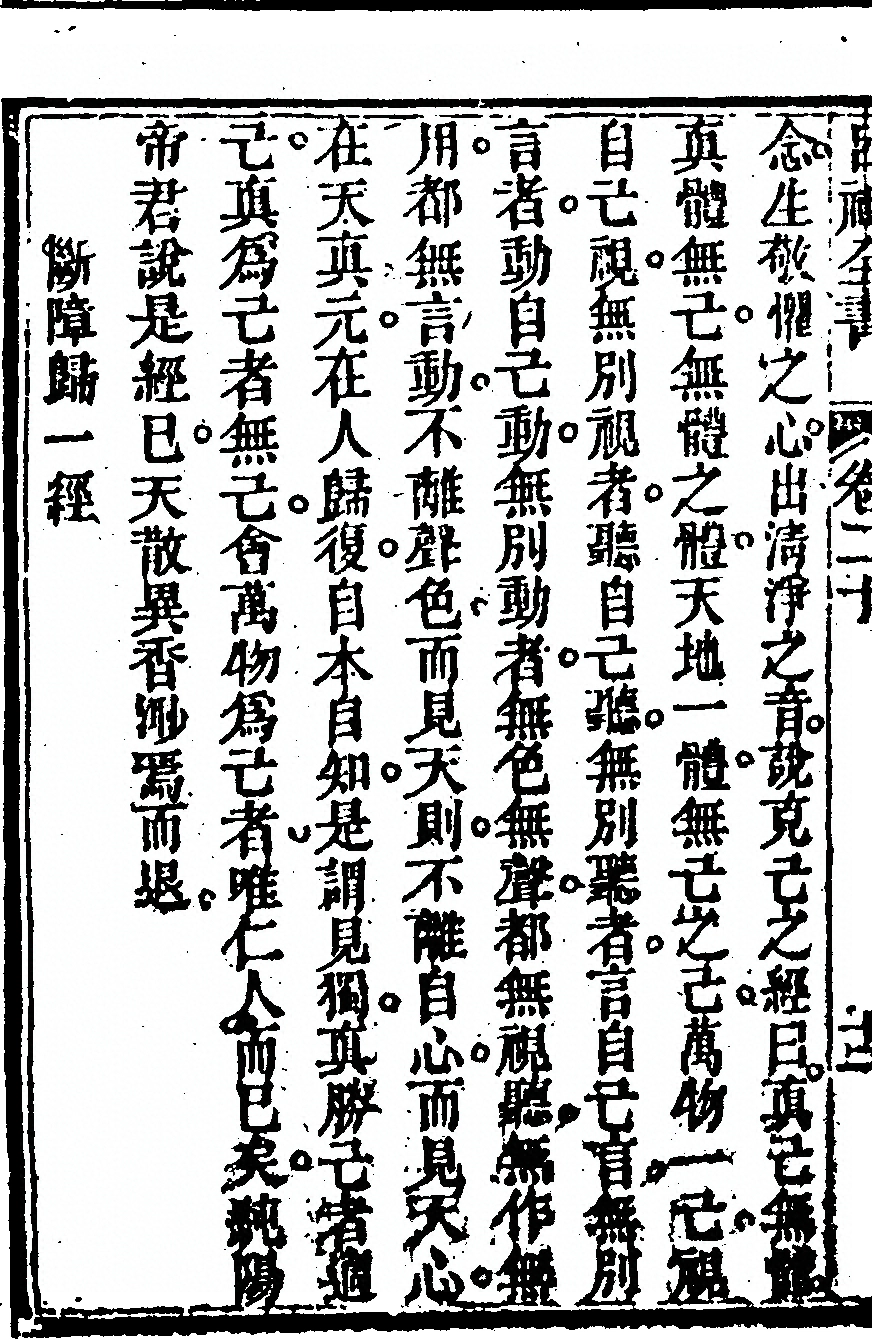 呂祖全書 卷二十 十二
念生敬懼之心出清淨之音說克己之經曰真己無體
真體無己無體之體天地一體無己之己萬物一己視
自己視無別視者聽自己聽無別聽者言自己言無別
言者動自己動無別動者無色無聲都無視聽無作無
用都無言動不離聲色而見天則不離自心而見天心
在天真元在人歸復自本自知是謂見獨真勝己者適
己真爲己者無己會萬物爲己者唯仁人而已矣純陽
帝君說是經已天散異香渺焉而退
斷障歸一經